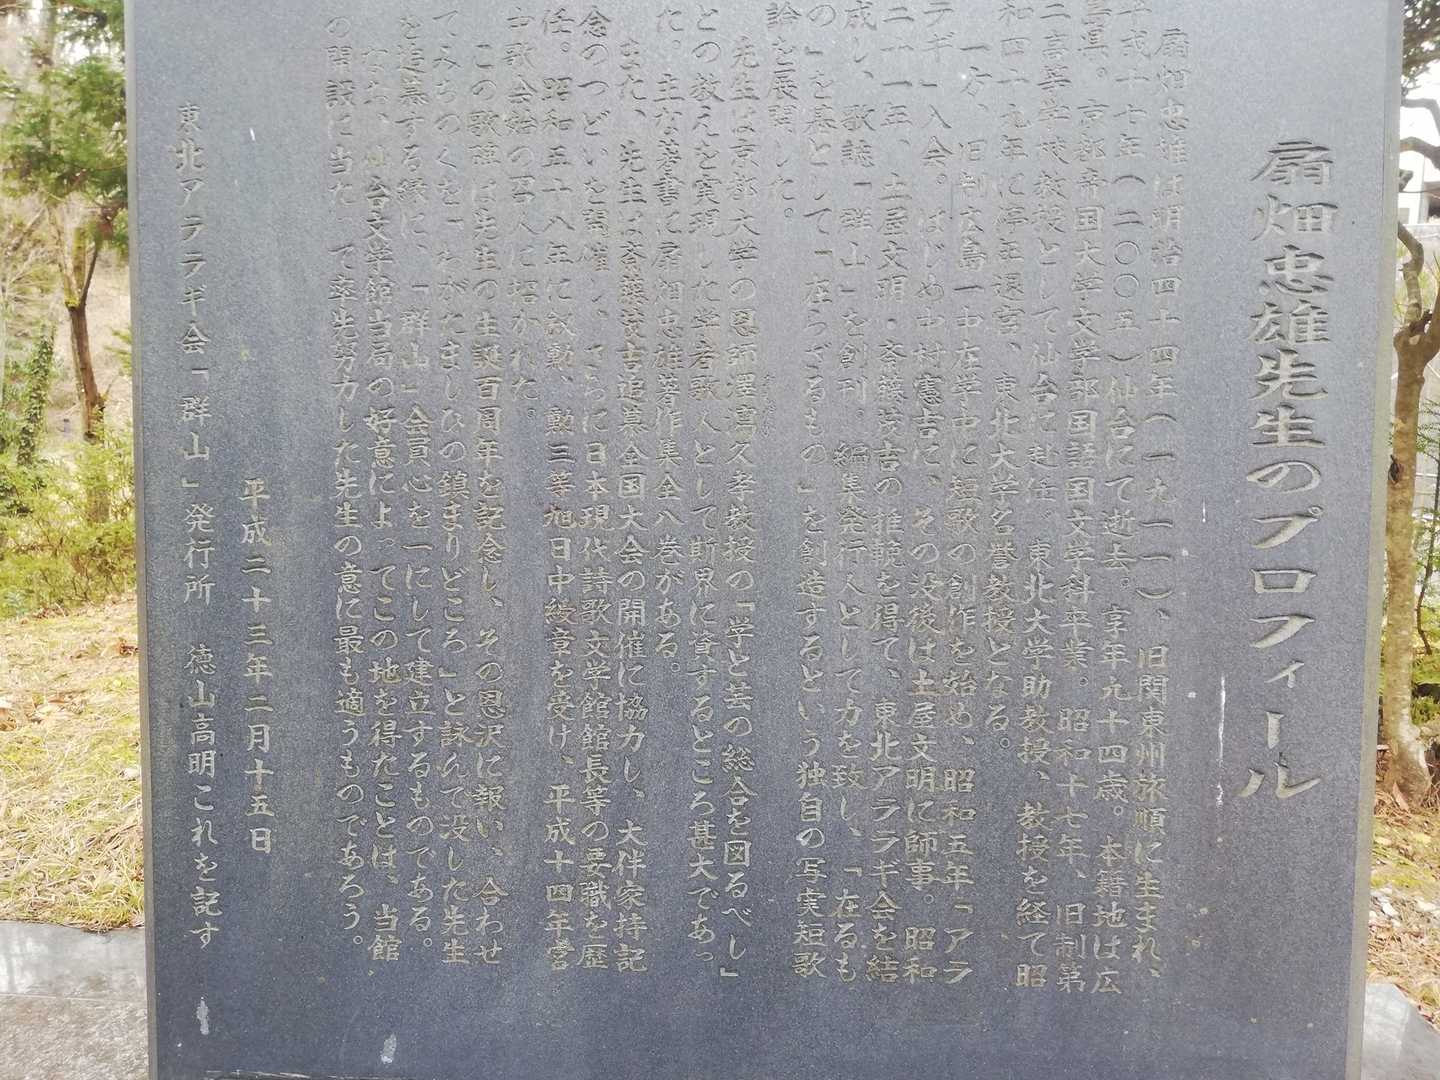 扇畑忠雄先生のプロフィール
扇畑忠雄は明治四十四年(一九一一)、旧関東州旅順に生まれ、
十七年(二〇〇五)仙台にて逝去。享年九十四歳。本籍地は広
島県。京都帝国大学文学部国語国文学科卒業。昭和十七年、旧制第
二高等学校教授として仙台に赴任、東北大学助教授、教授を経て昭
和四十九年に停年退官、東北大学名誉教授となる。
一方、旧制広島一中在学中に短歌の創作を始め、昭和五年「アラ
ラギ」入会。はじめ中村憲吉に、その没後は土屋文明に師事。昭和
二十一年、土屋文明・斎藤茂吉の推輓を得て、東北アララギ会を結
成し、歌誌「群山」を創刊。編集発行人として力を致し、「在るも
の」を基として「在らざるもの」を創造するという独自の写実短歌
論を展開した。
先生は京都大学の恩師澤瀉久孝教授の「学と芸の総合を図るべし」
との教えを実現した学者歌人として斯界に資するところ甚大であっ
た。主な著書に扇畑忠雄著作集全八巻がある。
また、先生は斎藤茂吉追慕全国大会の開催に協力し、大伴家持記
念のつどいを開催し、さらに日本現代詩歌文学館館長等の要職を歴
任。昭和五十八年に叙勲、勲三等旭日中綬章を受け、平成十四年宮
中歌会始の召人に招かれた。
この歌碑は先生の生誕百周年を記念し、その恩沢に報い、合わせ
てみちのくを「わがたましひの鎮まりどころ」と詠んで没した先生
を追慕する縁に、「群山」全員心を一にして建立するものである。
なお、仙台文学館当局の好意によってこの地を得たことは、当館
の開設に当たって率先努力した先生の意に最も適うものであろう。
平成二十三年二月十五日
東北アララギ会「群山」発行所 徳山高明これを記す